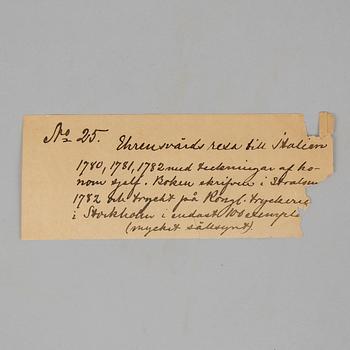 No 25. Ehrensvärds resa till Italien
1780, 1781, 1782 med teckningar af ho-
nom sjelf. Boken skrifven i Stralsun
1782 och tryckt på Kongl. tryckeriet
i Stockholm i endast 100 exempla
(mycket sällsynt)